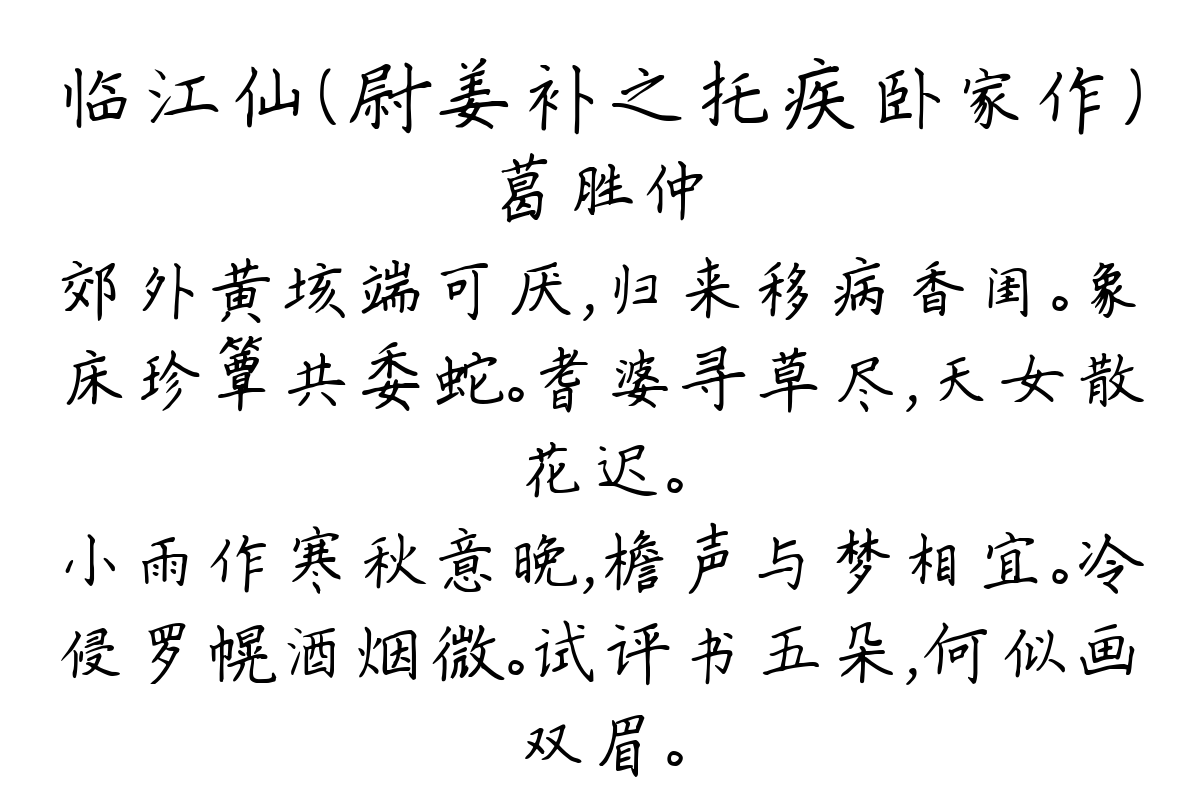 临江仙(尉姜补之托疾卧家作)
葛胜仲
郊外黄垓端可厌,归来移病香闺。象
床珍簟共委蛇。耆婆寻草尽,天女散
花迟。
小雨作寒秋意晚,檐声与梦相宜。冷
侵罗幌酒烟微。试评书五朵,何似画
双眉。